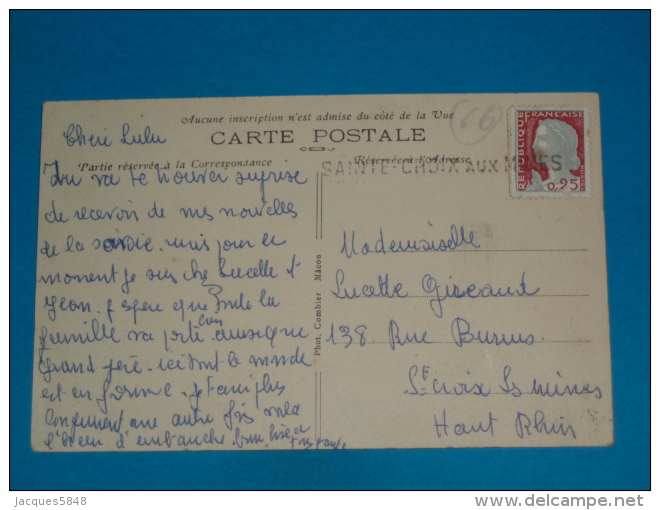 Aucune inscription n'est admise du côté de la Vue
CARTE POSTALE
Partie réservée à la Correspondance
Réservée à l'Adresse
66
SAINTE-CROIX AUX MINES
REPUBLIQUE FRANÇAISE
0,25
Cheri Lulu
Tu va te trouver surprise
de recevoir de mes nouvelles
de la mais pour le
moment je suis che Lucette et
Jean. J espere que toute la
famille va bien ainsi que
Grand père. ici tout le monde
est en forme. Je t'ecris plus
longuement une autre fois
l'heure d'embauche
Phot. Combier Mâcon
Mademoiselle
Lucette Giscaud
138 Rue Burrus.
Ste Croix Ls mines
Haut Rhin
Jacques5848
delcampe.net